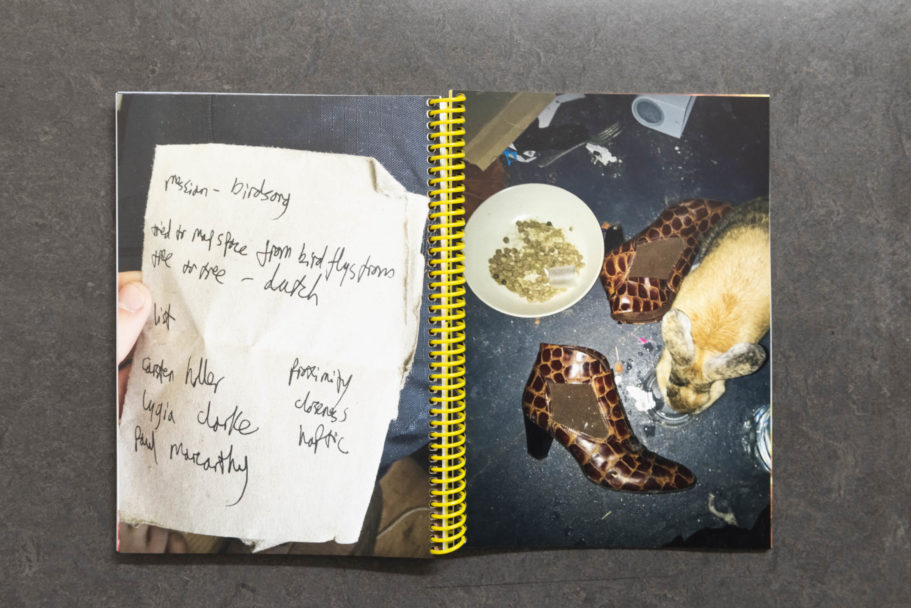 messian - birdsong
tried to map space from bird flys from
tree to tree - dutch
list
carsten holler
lygia clarke
Paul Maccarthy
proximity
closeness
haptic